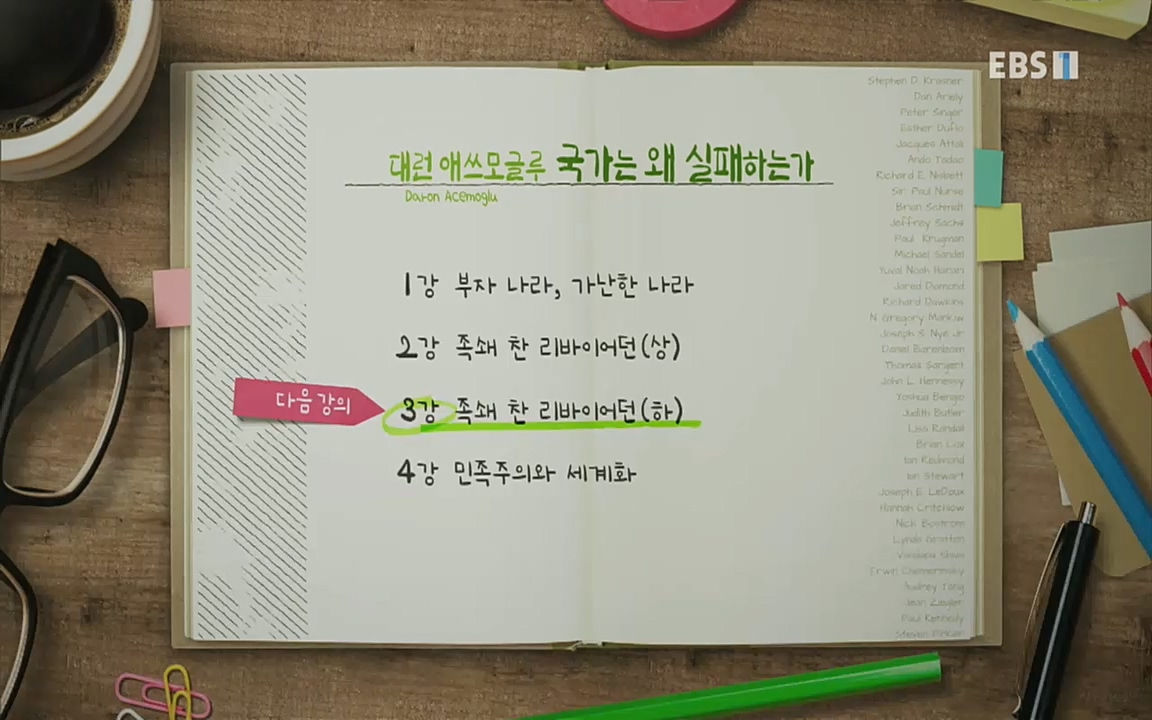 EBS 1
대런 애쓰모글루 국가는 왜 실패하는가
Daron Acemoglu
1강 부자 나라, 가난한 나라
2강 족쇄 찬 리바이어던(상)
다음 강의
3강 족쇄 찬 리바이어던(하)
4강 민족주의와 세계화
Stephen D. Krasner
Dan Ariely
Peter Singer
Esther Duflo
Jacques Attali
Ando Tadao
Richard E. Nisbett
Sir Paul Nurse
Brian Schmidt
Jeffrey Sachs
Paul Krugman
Michael Sandel
Yuval Noah Harari
Jared Diamond
Richard Dawkins
N Gregory Mankiw
Joseph S. Nye Jr
Daniel Barenboim
Thomas Sargent
John L. Hennessy
Yoshua Bengio
Judith Butler
Lisa Randall
Brian Cox
Ian Stewart
Joseph E. LeDoux
Hannah Critchlow
Nick Bostrom
Lynda Gratton
Vandana Shiva
Erwin Chemerinsky
Audrey Tang
Jean Ziegler
Paul Kennedy
Steven Pinker